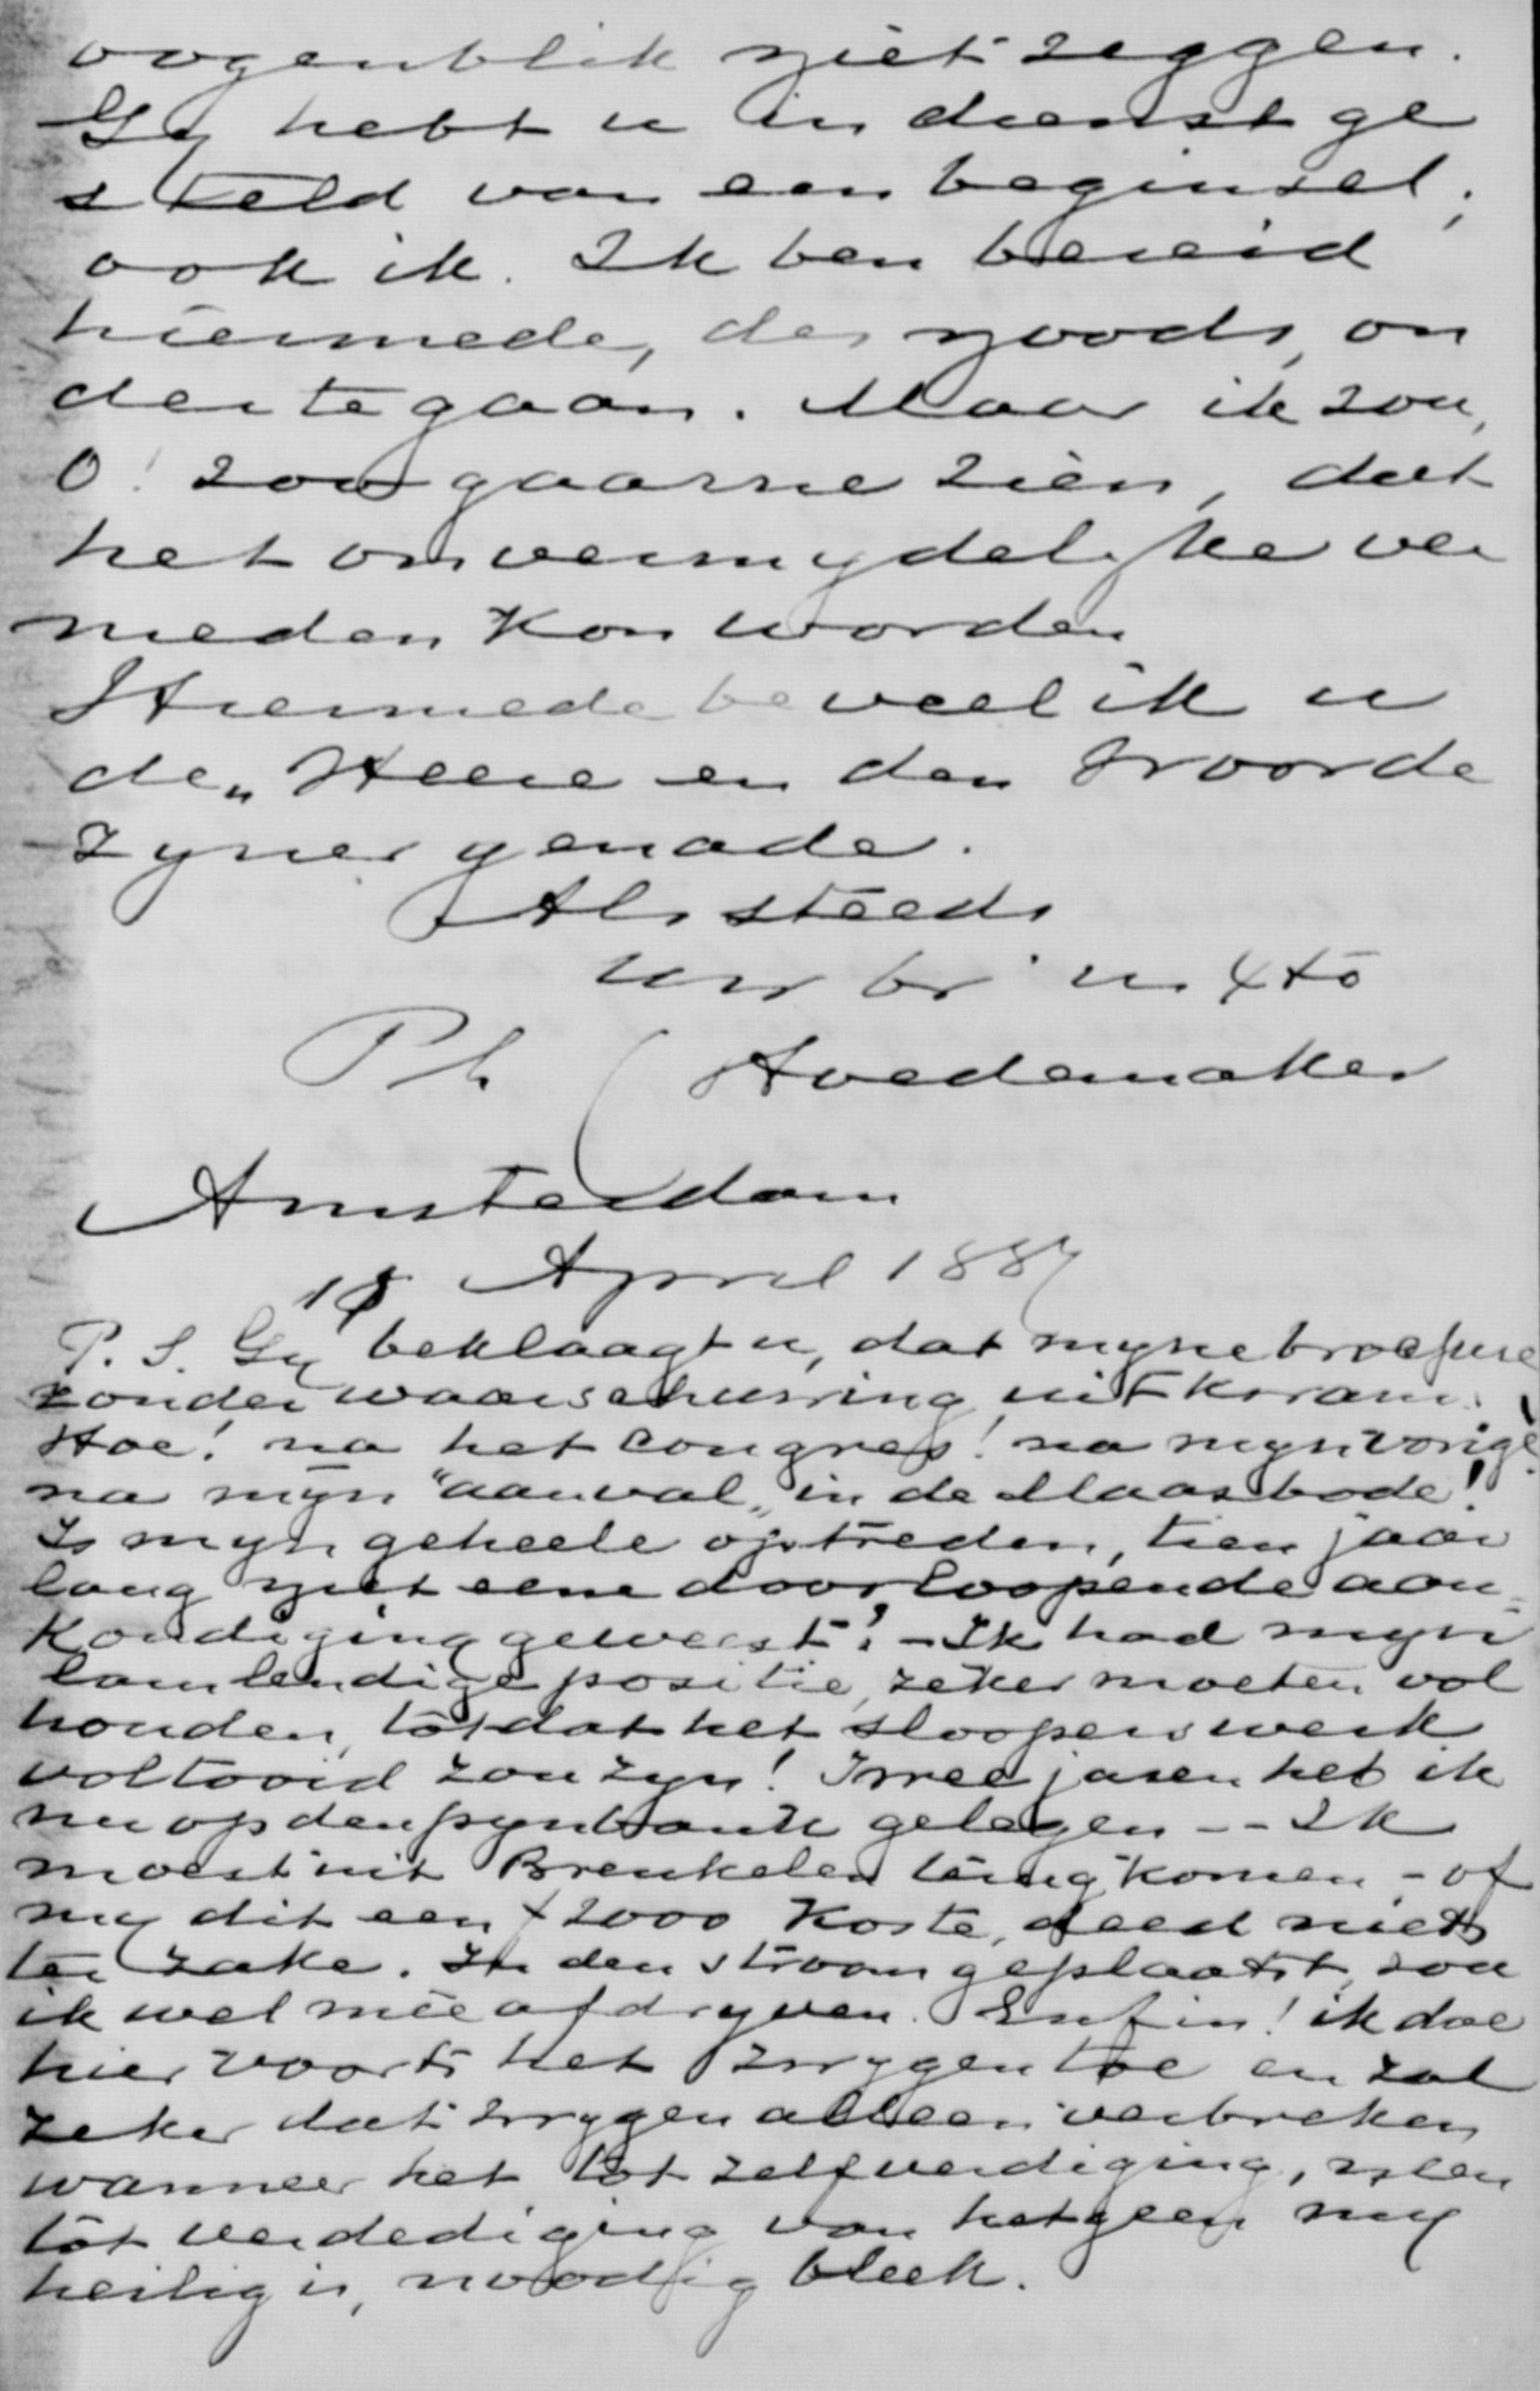 oogenblik niet zeggen.
Gy hebt u in dienst ge
steld van een beginsel;
ook ik. Ik ben bereid
hiermede, des noods, on
der te gaan. Maar ik zou,
O! zou gaarne zien, dat
het onvermydelyke ver
meden kon worden
Hiermede beveel ik u
den Heere en den woorde
zyner genade.
Als steeds
uw br in Xto
Ph Hoedemaker
Amsterdam
April 1887
P.S. Gy beklaagt u, dat myne brochure
zonder waarschuwing uitkwam.
Hoe! na het congres! na myn vorige
na myn "aanval" in de Maasbode!
Is myn geheele optreden, tien jaar
lang niet eene doorloopende aan=
kondiging geweest? - Ik had myn
lamlendige positie, zeker moeten vol
houden, totdat het sloopers werk
voltooid zou zyn! Twee jaren heb ik
nu op den pynbank gelegen -- Ik
moest uit Breukelen terug komen - of
my dit een f 2000 koste, deed niets
ter zake. In den stroom geplaatst, zou
ik wel mee afdryven. Enfin! ik doe
hier voorts het zwygen toe en zal
zeker dat zwygen alleen verbreken
wanneer het tot zelfverdiging, neen
tot verdediging van hetgeen my
heilig is, noodig bleek.